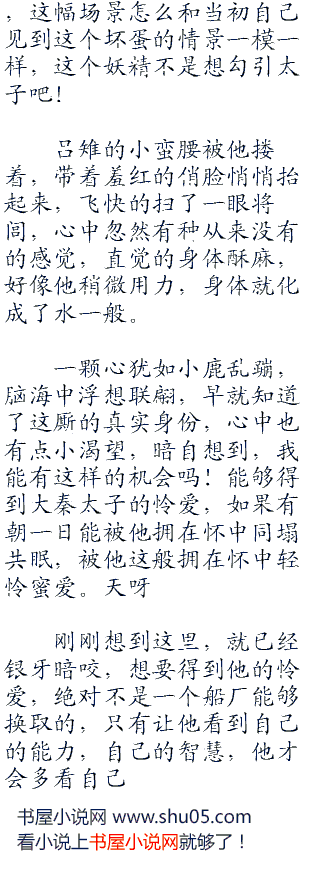 ，这幅场景怎么和当初自己
见到这个坏蛋的情景一模一
样，这个妖精不是想勾引太
子吧！
吕雉的小蛮腰被他搂
着，带着羞红的俏脸悄悄抬
起来，飞快的扫了一眼将
闾，心中忽然有种从来没有
的感觉，直觉的身体酥麻，
好像他稍微用力，身体就化
成了水一般。
一颗心犹如小鹿乱蹦，
脑海中浮想联翩，早就知道
了这厮的真实身份，心中也
有点小渴望，暗自想到，我
能有这样的机会吗！能够得
到大秦太子的怜爱，如果有
朝一日能被他拥在怀中同塌
共眠，被他这般拥在怀中轻
怜蜜爱。天呀
刚刚想到这里，就已经
银牙暗咬，想要得到他的怜
爱，绝对不是一个船厂能够
换取的，只有让他看到自己
的能力，自己的智慧，他才
会多看自己
书屋小说网 www.shu05.com
看小说上书屋小说网就够了！